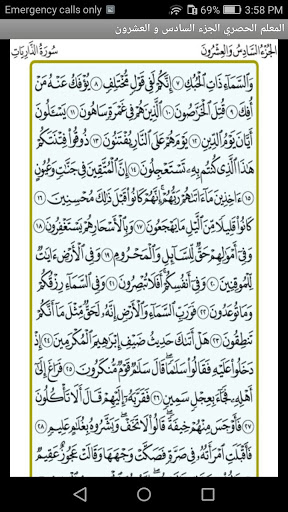 Emergency calls only
3:58 PM
المعلم الحصري الجزء السادس و العشرون
الجزء السادس والعشرون
سورة الذاريات
وَالسَّمَاءِ ذَاتِ الْحُبُكِ ٧ إِنَّكُمْ لَفِي قَوْلٍ مُّخْتَلِفٍ ٨ يُؤْفَكُ عَنْهُ مَنْ
أُفِكَ ٩ قُتِلَ الْخَرَّاصُونَ ١٠ الَّذِينَ هُمْ فِي غَمْرَةٍ سَاهُونَ ١١ يَسْـَٔلُونَ
أَيَّانَ يَوْمُ الدِّينِ ١٢ يَوْمَ هُمْ عَلَى النَّارِ يُفْتَنُونَ ١٣ ذُوقُوا فِتْنَتَكُمْ
هَٰذَا الَّذِي كُنتُم بِهِ تَسْتَعْجِلُونَ ١٤ إِنَّ الْمُتَّقِينَ فِي جَنَّاتٍ وَعُيُونٍ
١٥ ءَاخِذِينَ مَا ءَاتَاهُمْ رَبُّهُمْ إِنَّهُمْ كَانُوا قَبْلَ ذَٰلِكَ مُحْسِنِينَ ١٦
كَانُوا قَلِيلًا مِّنَ الَّيْلِ مَا يَهْجَعُونَ ١٧ وَبِالْأَسْحَارِ هُمْ يَسْتَغْفِرُونَ ١٨
وَفِي أَمْوَالِهِمْ حَقٌّ لِّلسَّائِلِ وَالْمَحْرُومِ ١٩ وَفِي الْأَرْضِ ءَايَاتٌ
لِّلْمُوقِنِينَ ٢٠ وَفِي أَنفُسِكُمْ أَفَلَا تُبْصِرُونَ ٢١ وَفِي السَّمَاءِ رِزْقُكُمْ
وَمَا تُوعَدُونَ ٢٢ فَوَرَبِّ السَّمَاءِ وَالْأَرْضِ إِنَّهُ لَحَقٌّ مِّثْلَ مَا أَنَّكُمْ
تَنطِقُونَ ٢٣ هَلْ أَتَاكَ حَدِيثُ ضَيْفِ إِبْرَاهِيمَ الْمُكْرَمِينَ ٢٤ إِذْ
دَخَلُوا عَلَيْهِ فَقَالُوا سَلَامًا قَالَ سَلَامٌ قَوْمٌ مُّنكَرُونَ ٢٥ فَرَاغَ إِلَىٰ
أَهْلِهِ فَجَاءَ بِعِجْلٍ سَمِينٍ ٢٦ فَقَرَّبَهُ إِلَيْهِمْ قَالَ أَلَا تَأْكُلُونَ
٢٧ فَأَوْجَسَ مِنْهُمْ خِيفَةً قَالُوا لَا تَخَفْ وَبَشَّرُوهُ بِغُلَامٍ عَلِيمٍ ٢٨
فَأَقْبَلَتِ امْرَأَتُهُ فِي صَرَّةٍ فَصَكَّتْ وَجْهَهَا وَقَالَتْ عَجُوزٌ عَقِيمٌ